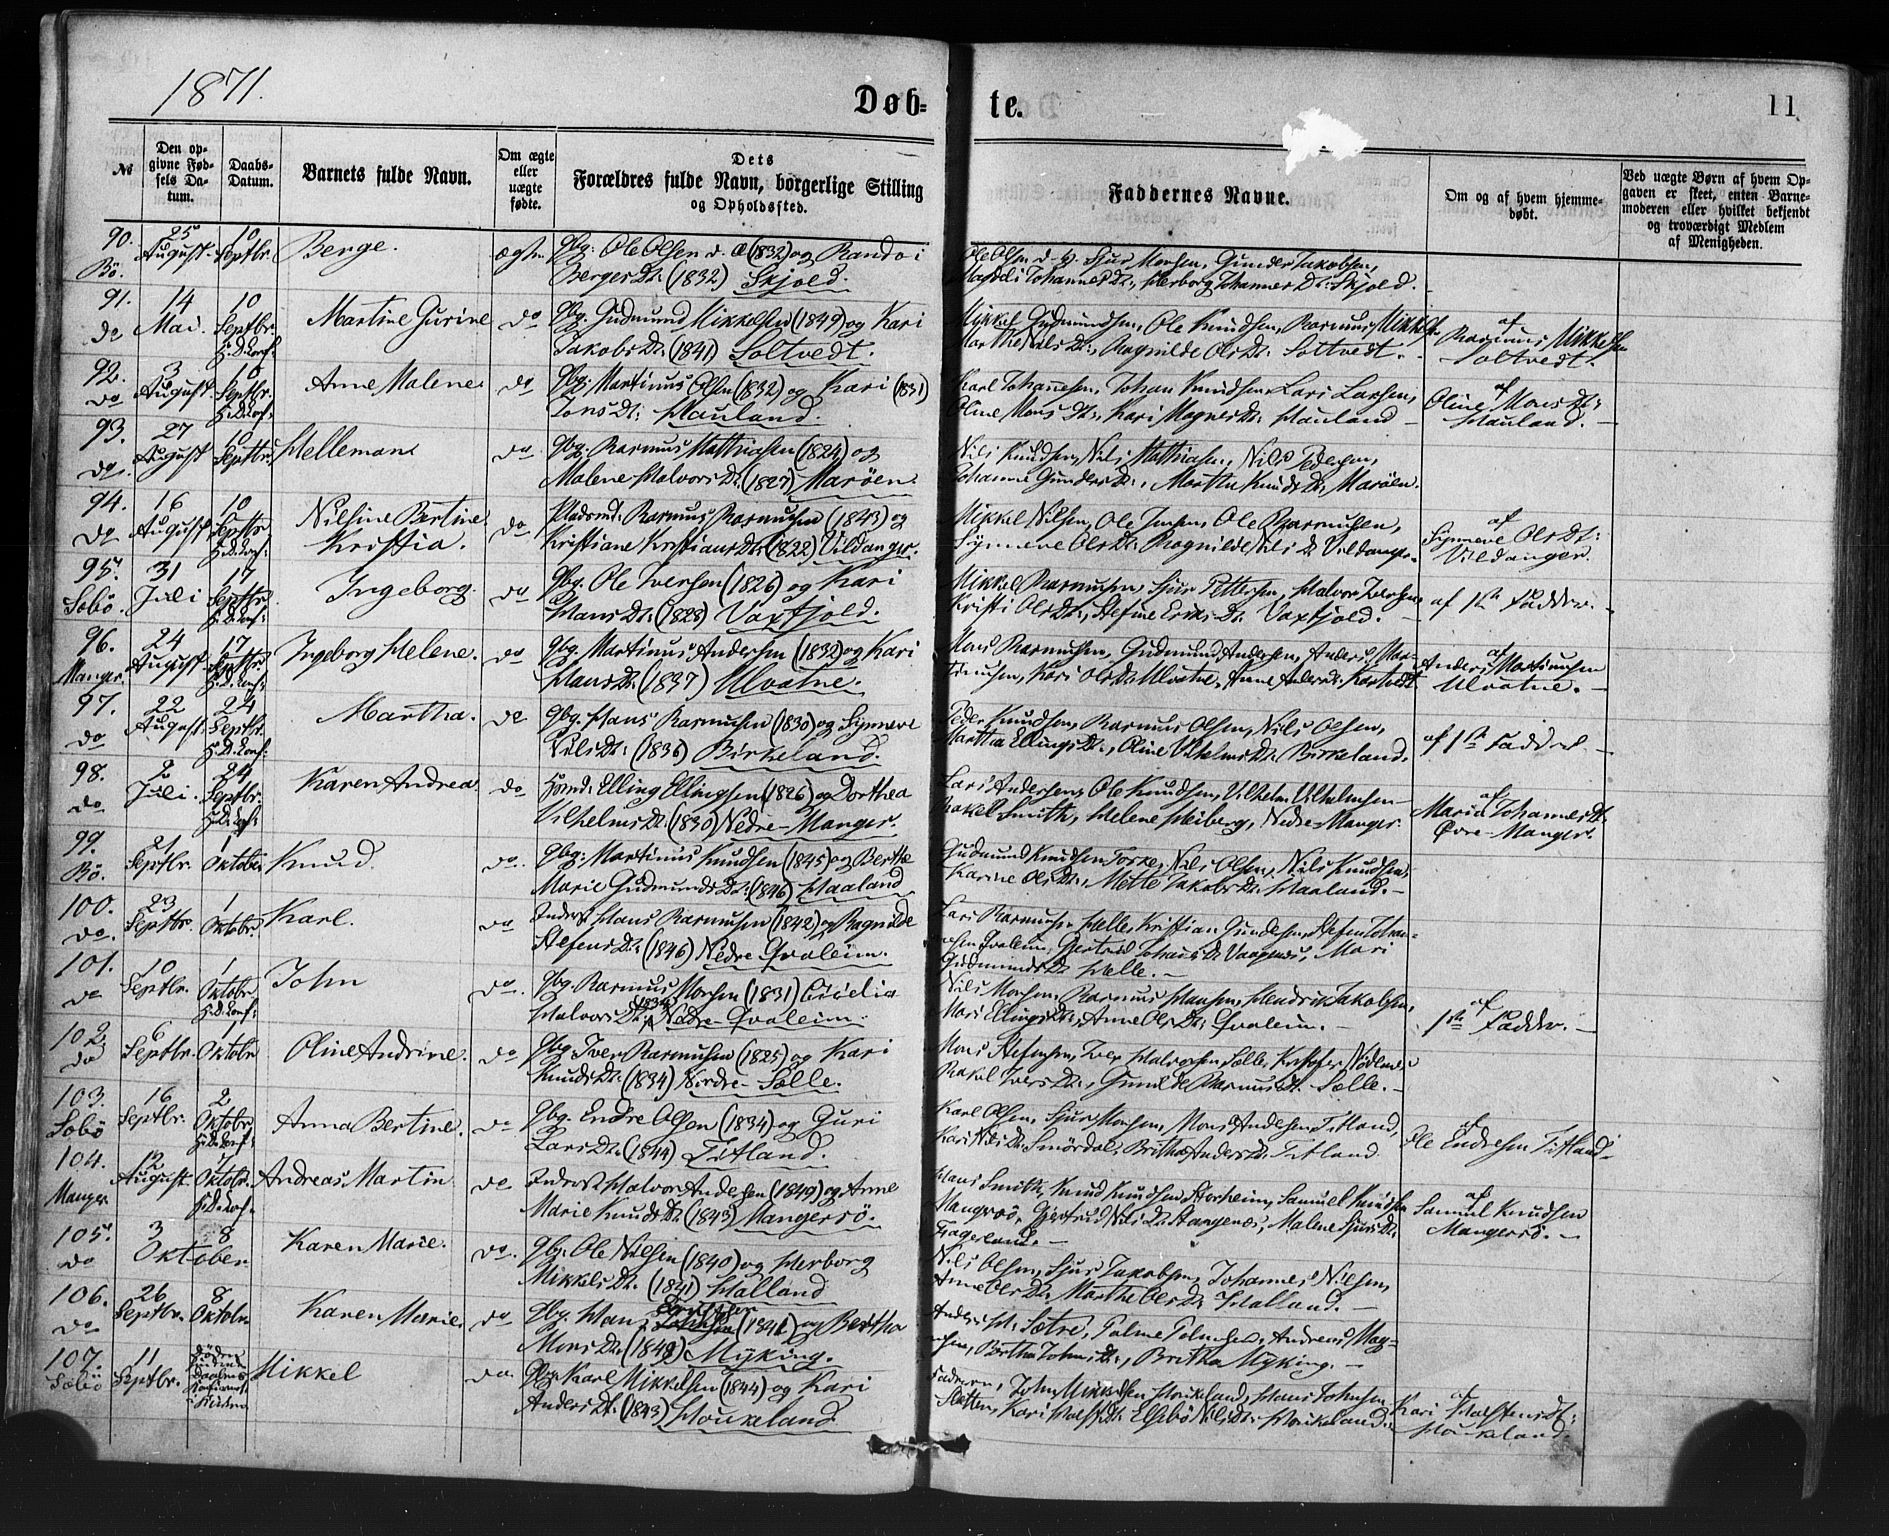 1871.
Døb=
te.
11
№
Den op-
givne Fød-
sels Da-
tum.
Daabs-
Datum.
Barnets fulde Navn.
Om ægte
eller
uægte
fødte.
Dets
Forældres fulde Navn, borgerlige Stilling
og Opholdssted.
Faddernes Navne.
Om og af hvem hjemme-
døbt.
Ved uægte Børn af hvem Op-
gaven er skeet, enten Barne-
moderen eller hvilket bekjendt
og troværdigt Medlem
af Menigheden.
90. 25 10
Bö. August. Septbr. Berge. ægte. Gbg: Ole Olsen d. Æ (1832) og Randvi
Bergers Dt: (1832) Skjold.
Ole Olsen d. y. Sjur Monsen, Gunder Jakobsen,
Johannes Dt:, Herborg Johannes Dt: Skjold.
91. 14 10
do Mai. Septbr. Martine Gurine do Gbg. Gudmund Mikkelsen (1849) og Kari
H: D: Conf: Jakobs Dt: (1841) Soltvedt.
Mikkel Gudmundsen, Ole Knudsen, Rasmus Mikkelsen
Marthe Nils Dt:, Ragnilde Ols Dt: Soltvedt.
af
Rasmus Mikkelsen
Soltvedt.
92. 3 10
do August. Septbr. Anne Malene. do Gbg: Martinus Olsen (1832) og Kari (1831)
H: D: Conf: Jons Dt: Hauland.
Karl Johannesen, Johan Knudsen, Lars Larsen,
Oline Mons Dt:, Kari Magnes Dt: Hauland
af
Oline Mons Dt:
Hauland.
93. 27 10
do August Septbr. Hellemone do Gbg. Rasmus Matthiasen (1824) og
Malene Halvors Dt. (1827) Maröen.
Nils Knudsen, Nils Matthiasen, Nils Pedersen,
Johanne Gunders Dt:, Martha Knuds Dt: Maröen.
94. 16 10
do August Septbr. Nilsine Bertine do Pladsmd: Rasmus Rasmusen (1843) og
H: D: Conf: Kristia. Kristiane Kristians Dt: (1822) Vildanger.
Mikkel Nilsen, Ole Jensen, Ole Rasmusen,
Synneve Ols Dt: Ragnilde Nils Dt Vildanger.
af
Synneve Ols Dt:
Vildanger.
95. 31 17
Sæbö. Juli Septbr. Ingeborg. do Gbg. Ole Iversen (1826) og Kari
H: D: Conf: Hans Dt: (1828) Vaxtjold.
Mikkel Rasmusen, Sjur Pettersen, Halvor Iversen
Kristi Ols Dt:, Stefine Eriks Dt. Vaxtjold.
af 1ste Fadder.
96. 24 17
Manger. August. Septbr. Ingeborg Helene. do Gbg. Martinus Andersen (1832) og Kari
H: D: Conf: Hans Dt: (1837) Ulvatne.
Mons Rasmusen, Gudmund Andersen, Anders Mar-
tinusen, Kari Ols Dt: Ulvatne, Anne Anders Dt: Kartvedt
af
Anders Martinusen
Ulvatne.
97. 22 24
do August. Septbr. Martha. do Gbg. Hans Rasmusen (1830) og Synneve
H: D: Conf: Nils Dt: (1836) Birkeland.
Peder Knudsen, Rasmus Olsen, Nils Olsen,
Martha Ellings Dt:, Oline Vilhelms Dt. Birkeland.
af 1ste Fadder.
98. 2 24
do Juli. Septbr. Karen Andrea. do Elling Ellingsen (1826) og Dorthea
H: D: Conf: Vilhelms Dt. (1830) Nedre-Manger.
Lars Andersen, Ole Knudsen, Vilhelm Vilhelmsen
Rakel Smith, Helene Heiberg, Nedre Manger.
af
Maria Johannes Dt:
Övre Manger.
99. 21 1
Bö. Septbr. Oktober Knud. do. Gbg: Martinus Knudsen (1845) og Berthe
Marie Gudmunds Dt: (1846) Haaland
Gudmund Knudsen Torke, Nils Olsen, Nils Knudsen,
Karine Ols Dt:, Mette Jakobs Dt: Haaland.
100. 23 1
do. Septbr. Oktober. Karl. do Inderst Hans Rasmusen (1842) og Ragnilde
Stefens Dt: (1846) Nedre Qvaleim.
Lars Rasmusen Helle, Kristian Gundersen, Stefen Johan-
nesen Qvaleim, Gjertrud Johans Dt Vaagenes, Mari
Gudmunds Dt Helle.
101. 10 1
do Septbr. Oktober John do. Gbg. Rasmus Monsen (1831)
H: D: Conf: Halvors Dt: (1834) Nedre Qvaleim.
Nils Monsen, Rasmus Hansen, Hendrik Jakobsen,
Mari Ellings Dt:, Anne Ols Dt: Qvaleim.
af
1ste Fadder.
102. 6 1
do Septbr. Oktobr Oline Andrine. do. Gbg. Iver Rasmusen (1825) og Kari
Knuds Dt: (1834) Nordre-Sölle.
Mons Stefensen, Iver Halvorsen Sælle,
Rakel Ivers Dt:, Gunilde Rasmus Dt. Sælle.
103. 16 2
Sæbö Septbr. Oktobr. Anna Bertine. do Gbg. Endre Olsen (1834) og Guri
H: D: Conf: Lars Dt. (1844) Titland.
Karl Olsen, Sjur Monsen, Mons Andersen Titland,
Kari Nils Dt. Smördal, Britha Anders Dt. Titland
af
Ole Endresen Titland
104. 12 7
Manger August. Oktobr. Andreas Martin do Inderst Halvor Andersen (1849) og Anne
H: D: Conf: Marie Knuds Dt. (1843) Mangersö.
Hans Smith, Knud Knudsen Storheim, Samuel Knudsen
Mangersö, Gjertrud Nils Dt. Stangenes, Malene Sjurs Dt.
Fagerland.
af
Samuel Knudsen
Mangersö.
105. 3 8
do Oktober. Karen Marie. do. Gbg. Ole Nilsen (1840) og Herborg
Mikkels Dt. (1841) Halland
Nils Olsen, Sjur Jakobsen, Johannes Nilsen,
Anne Ols Dt. Marthe Ols Dt. Halland.
106. 26 8
do Septbr. Oktobr. Karen Marie. do Gbg. Hans (1841) og Bertha
Mons Dt. (1849) Myking.
Anders M. Sætre, Andreas Mag-
nesen, Bertha Johns Dt., Britha Myking.
107. 11
Sæbö Septbr. Mikkel do. Gbg. Karl Mikkelsen (1844) og Kari
Anders Dt. (1843) Houkeland.
John Mikkelsen Houkeland, Hans Johnsen
Sletten, Kari Dt: Elsebö Nils Dt: Houkeland.
af
Kari Dt:
Houkeland.